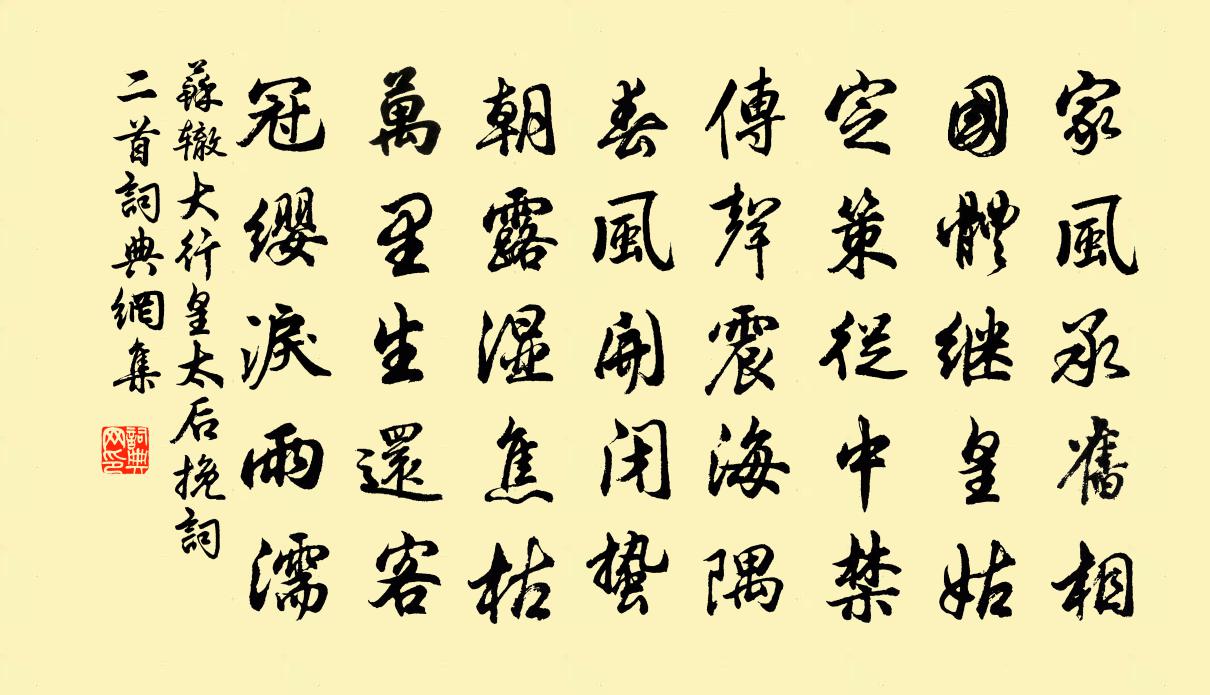 家風承舊相
國體继皇姑
定策從中禁
傳聲震海隅
春風開閉蟄
朝露濕焦枯
萬里生還客
冠纓淚雨濡
蘇辙大行皇太后挽詞
二首詞典網集
詞典
网印